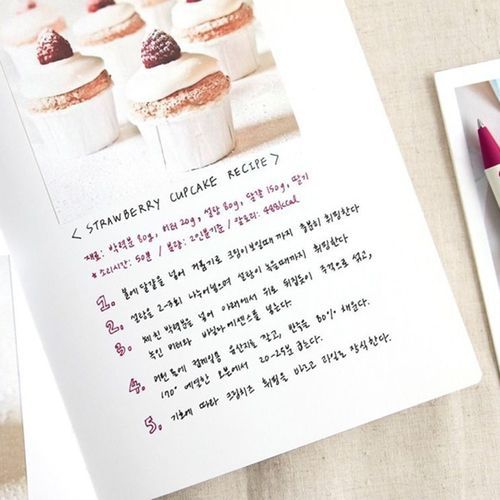 < STRAWBERRY CUPCAKE RECIPE >
재료: 박력분 80g, 버터 20g, 설탕 80g, 달걀 150g, 딸기
* 조리시간: 50분 / 분량: 2인분기준 / 칼로리: 448kcal
1. 볼에 달걀을 넣어 거품기로 크림이 보일때까지 충분히 휘핑한다
2. 설탕을 2-3회 나누어넣으며 설탕이 녹을때까지 휘핑한다
3. 체친 박력분을 넣어 아래에서 위로 뒤집듯이 주걱으로 섞고,
녹인 버터와 바닐라에센스를 넣는다.
4. 머핀틀에 컵케익용 유산지를 깔고, 반죽을 80% 채운다.
170° 예열한 오븐에서 20-25분 굽는다.
5. 기호에 따라 크림치즈 휘핑을 바르고 과일로 장식한다.